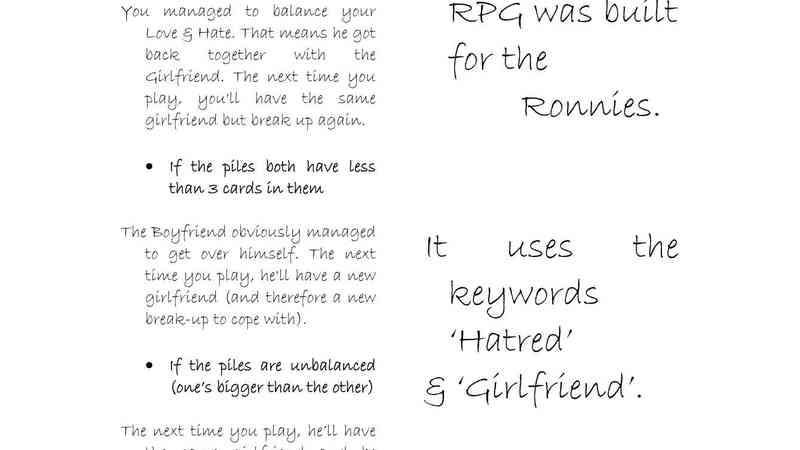 You managed to balance your
Love & Hate. That means he got
back together with the
Girlfriend. The next time you
play, you'll have the same
girlfriend but break up again.
• If the piles both have less
than 3 cards in them
The Boyfriend obviously managed
to get over himself. The next
time you play, he'll have a new
girlfriend (and therefore a new
break-up to cope with).
• If the piles are unbalanced
(one's bigger than the other)
The next time you play, he'll have
RPG was built
for the
Ronnies.
It uses the
keywords
'Hatred'
& 'Girlfriend'.